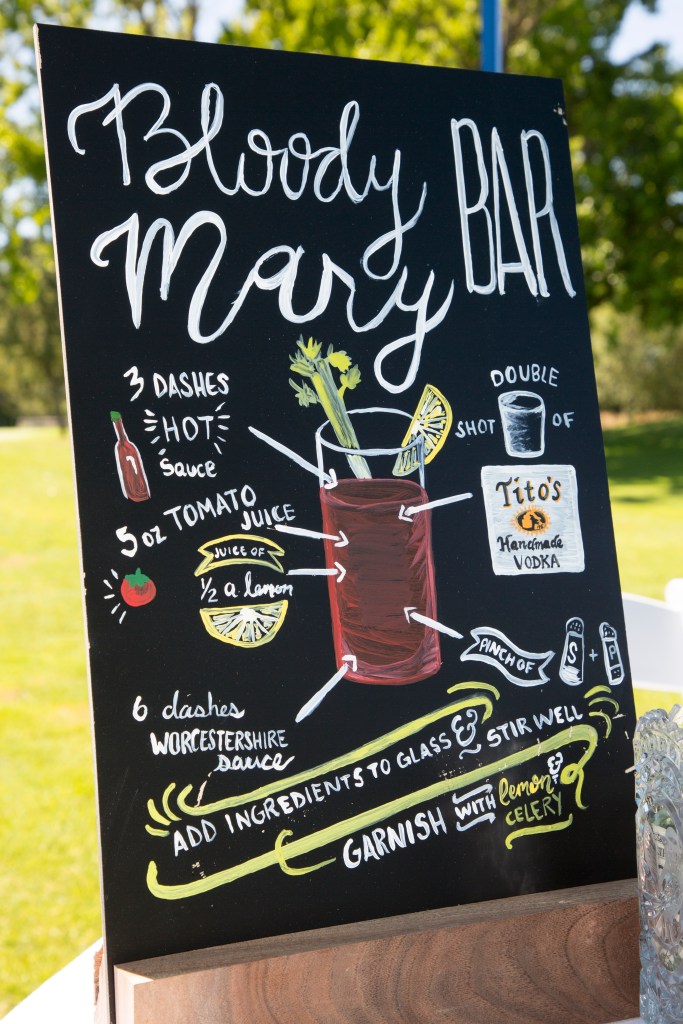 Bloody
Mary
BAR
3 DASHES
HOT
sauce
5 oz TOMATO
JUICE
JUICE OF
½ a lemon
6 dashes
WORCESTERSHIRE
sauce
DOUBLE
SHOT OF
Tito's
Handmade
VODKA
PINCH OF
S + P
ADD INGREDIENTS TO GLASS & STIR WELL
&
GARNISH WITH lemon +
CELERY